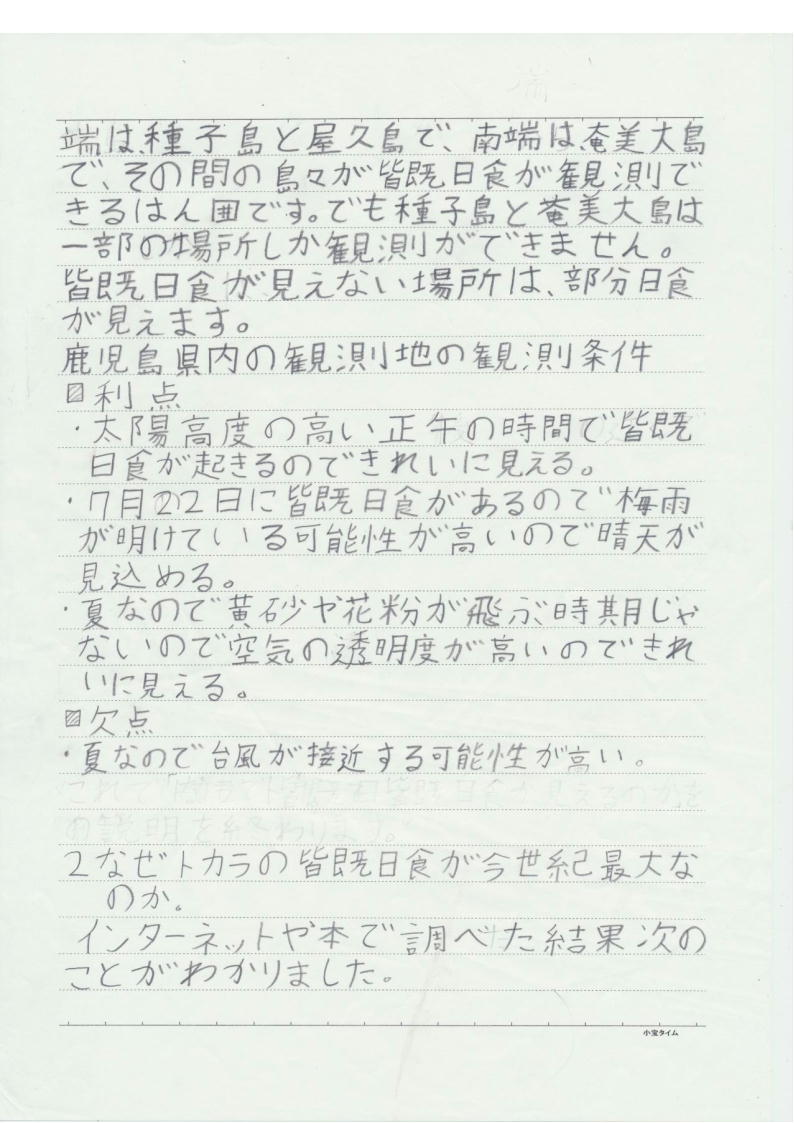 端は種子島と屋久島で、南端は奄美大島
で、その間の島々が皆既日食が観測で
きるはん囲です。でも種子島と奄美大島は
一部の場所しか観測ができません。
皆既日食が見えない場所は、部分日食
が見えます。
鹿児島県内の観測地の観測条件
▨利点
・太陽高度の高い正午の時間で皆既
日食が起きるのできれいに見える。
・7月22日に皆既日食があるので梅雨
が明けている可能性が高いので晴天が
見込める。
・夏なので黄砂や花粉が飛ぶ時期じゃ
ないので空気の透明度が高いのできれ
いに見える。
▨欠点
・夏なので台風が接近する可能性が高い。
の説明を終わります。
2なぜトカラの皆既日食が今世紀最大な
のか。
インターネットや本で調べた結果次の
ことがわかりました。
小宝タイム